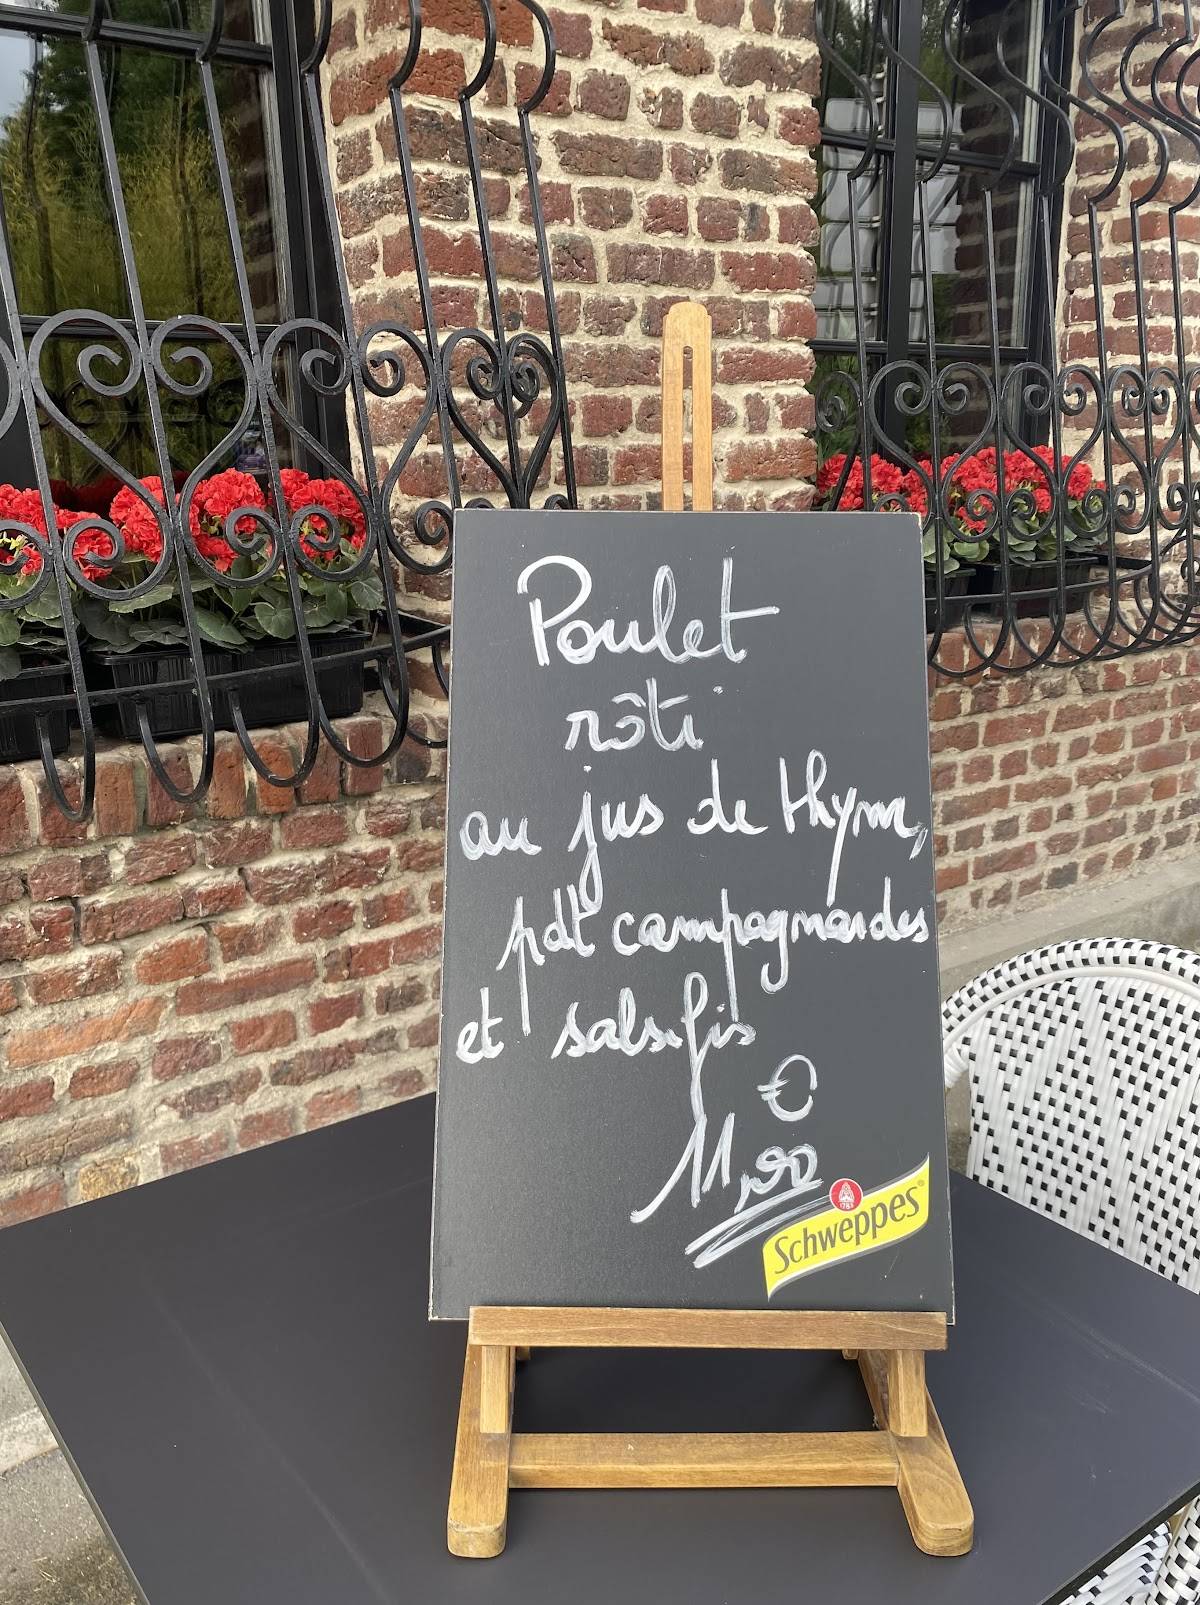 Poulet
rôti
au jus de thym,
pdt campagnardes
et salsifis
€
11,90
1783
Schweppes®